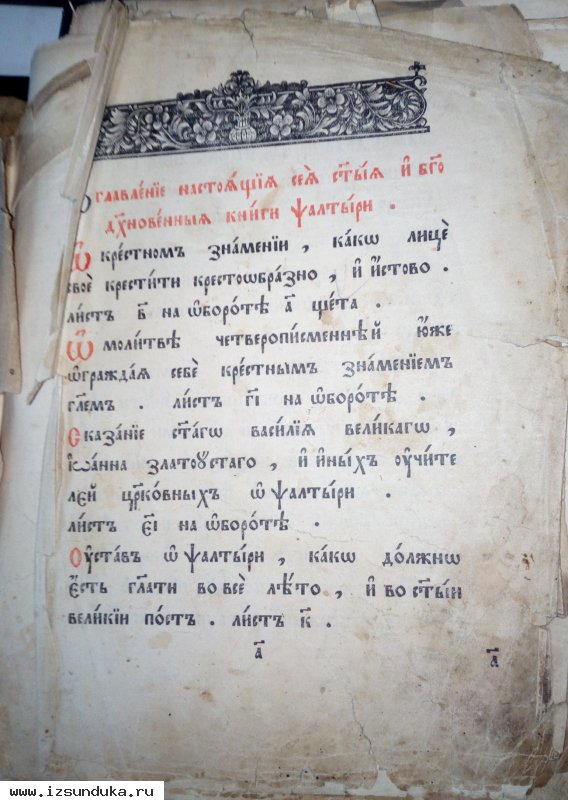 Ѻглавле́нїе настоѧ́щїѧ сеѧ̀ ст҃ы́ѧ и҆ бг҃о
дх҃нове́нныѧ кни́ги ѱалты́ри .
Ѽ кре́стномъ зна́менїи , ка́кѡ лицѐ
своѐ крести́ти крестѡѡбра́зно , и҆ и҆́стово .
ли́стъ в҃ на ѡ҆боро́тѣ а҃ ще́та .
Ѽ моли́твѣ четверописменнѣ́й ю҆́же
ѡ҆гражда́ѧ себѐ кре́стнымъ зна́менїемъ
гл҃емъ . ли́стъ г҃і на ѡ҆боро́тѣ .
Сказа́нїе ст҃а́гѡ васи́лїѧ вели́кагѡ ,
і҆ѡа́нна златоꙋ́стаго , и҆ и҆ны́хъ ᲂу҆чи́те
ле́й цр҃ко́вныхъ ѡ҆ ѱалты́ри .
ли́стъ є҃і на ѡ҆боро́тѣ .
Оу҆ста́въ ѡ҆ ѱалты́ри , ка́кѡ до́лжнѡ
є҆́сть гл҃ати во всѐ лѣ́то , и҆ во ст҃ы́и
вели́кїи по́стъ . ли́стъ к҃ .
а҃ а҃
www.izsunduka.ru